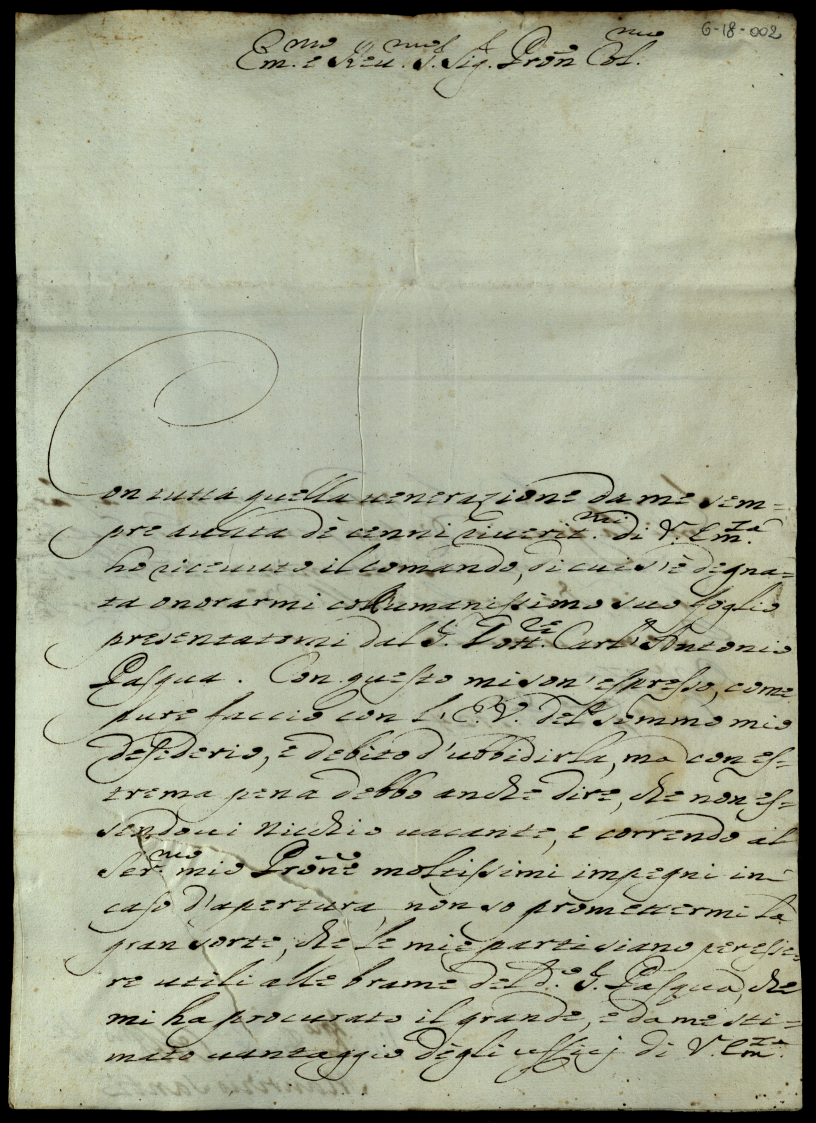 6-18-002
Em.mo e Reu.mo S. Sig. Prõn Col.mo
Con tutta quella uenerazione da me sem=
pre auuta dè cenni riueriti.mi di V. Em.za
ho riceuuto il comando, di cui s'è degna=
ta onorarmi coll'umanissimo suo foglio
presentatomi dal S. Dott.re Carl'Antonio
Pasqua. Con questo mi son'espresso, come
pure faccio con l'E.V. del sommo mio
desiderio, e debito d'ubbidirla, ma con es=
trema pena debbo anche dire, che non es=
sendoui Nicchio uacante, e correndo al
Ser.mo mio Prõne moltissimi impegni in
caso d'apertura non so promettermi la
gran sorte, che le mie parti siano per esse=
re utili alle brame del d.o S. Pasqua, che
mi ha procurato il grande, e da me sti=
mato uantaggio degli ufficj di V. Em.za